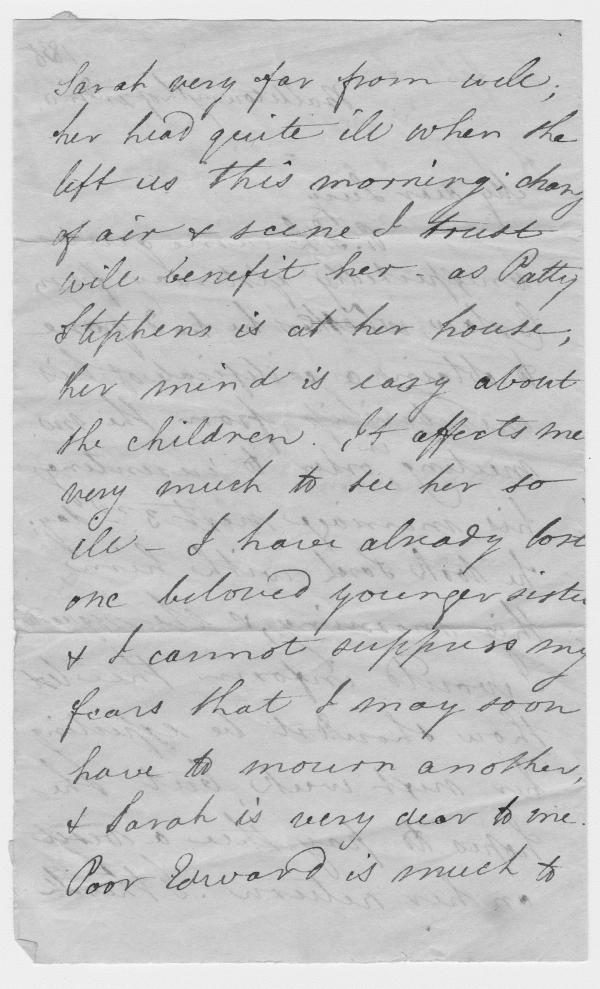 Sarah very far from well;
her head quite ill when she
left us this morning; chang
of air & scene I trust
will benefit her - as Patty
Stephens is at her house,
her mind is easy about
the children. It affects me
very much to see her so
ill - I have already lost
one beloved younger sister
& I cannot suppress my
fears that I may soon
have to mourn another,
& Sarah is very dear to me.
Poor Edward is much to